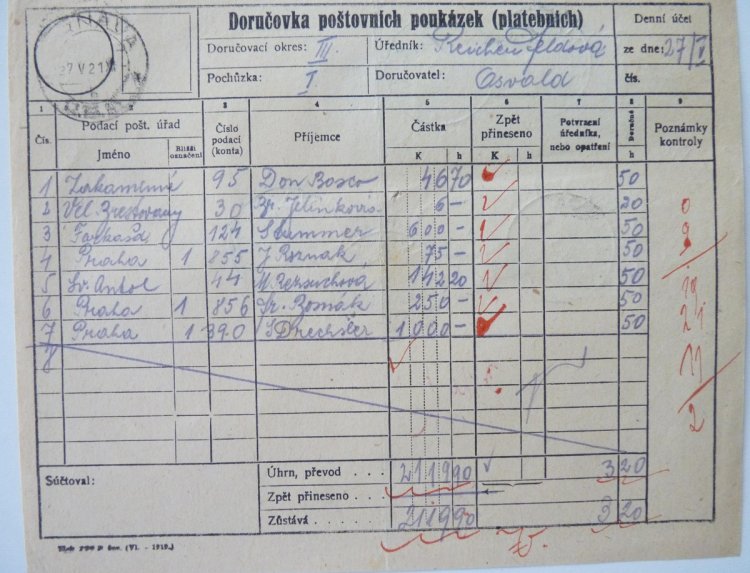 Doručovka poštovních poukázek (platebních)
Denní účet
RNAVA
27 V 21
Doručovací okres: III.
Úředník: Reichenfeldová
ze dne: 27/V
Pochůzka: I
Doručovatel: Osvald
čís.
1 2 3 4 5 6 7 8 9
Čís.
Podací pošt. úřad
Jméno
Bližší označení
Číslo podací (konta)
Příjemce
Částka
K h
Zpět přineseno
K h
Potvrzení úředníka, nebo opatření
Doručné
h
Poznámky kontroly
1 Zakamenné 95 Don Bosco 46 70 50
2 Vel. Brestovany 30 Jelinková 6 – 20
3 Farkašd 124 Stummer 600 – 50
4 Praha 1 855 J. Roznak 75 – 50
5 Sv. Antol 44 M. 142 20 50
6 Praha 1 856 Fr. Bomák 250 – 50
7 Praha 1 390 S Drechsler 1000 – 50
8
Súčtoval:
Úhrn, převod . . . . 2119 90 3 20
Zpět přineseno . . . .
Zůstává . . . . . 2119 90 3 20
(VI. - 1919.)